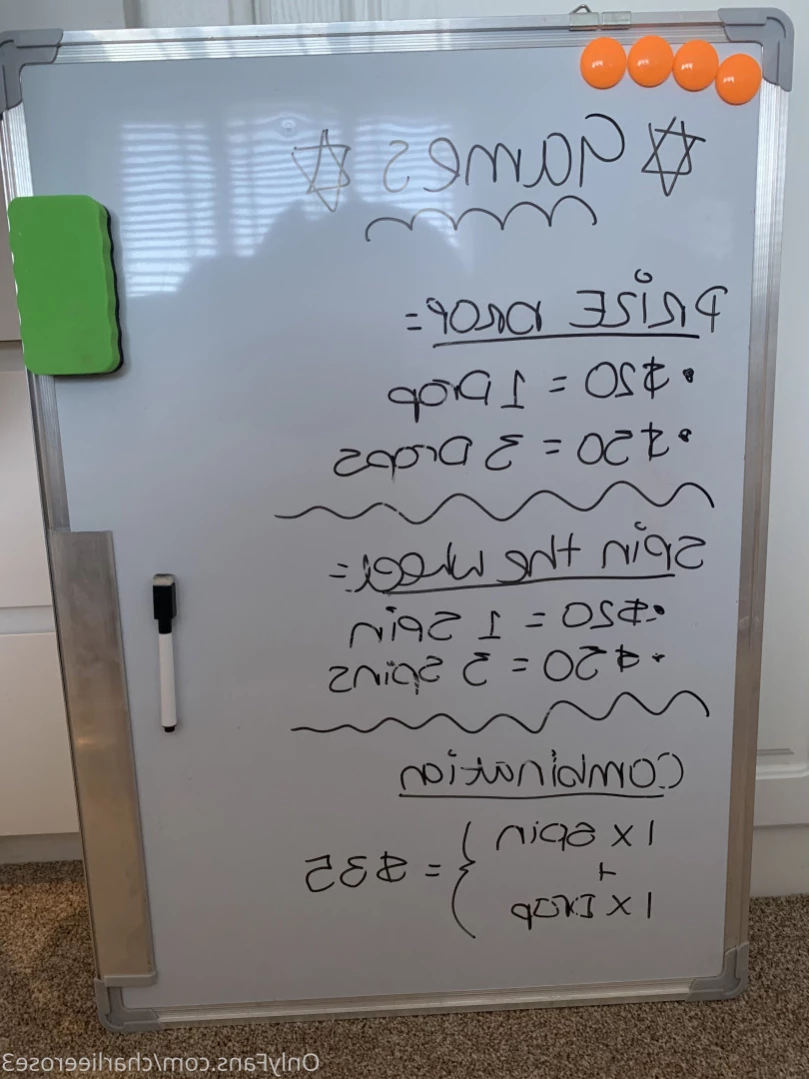 Games
PRIZE DROP=
• $20 = 1 Drop
• $50 = 3 Drops
Spin the wheel=
• $20 = 1 Spin
• $50 = 3 Spins
Combination
1 x spin
+
1 x Drop
} = $35
OnlyFans.com/charlieerose3